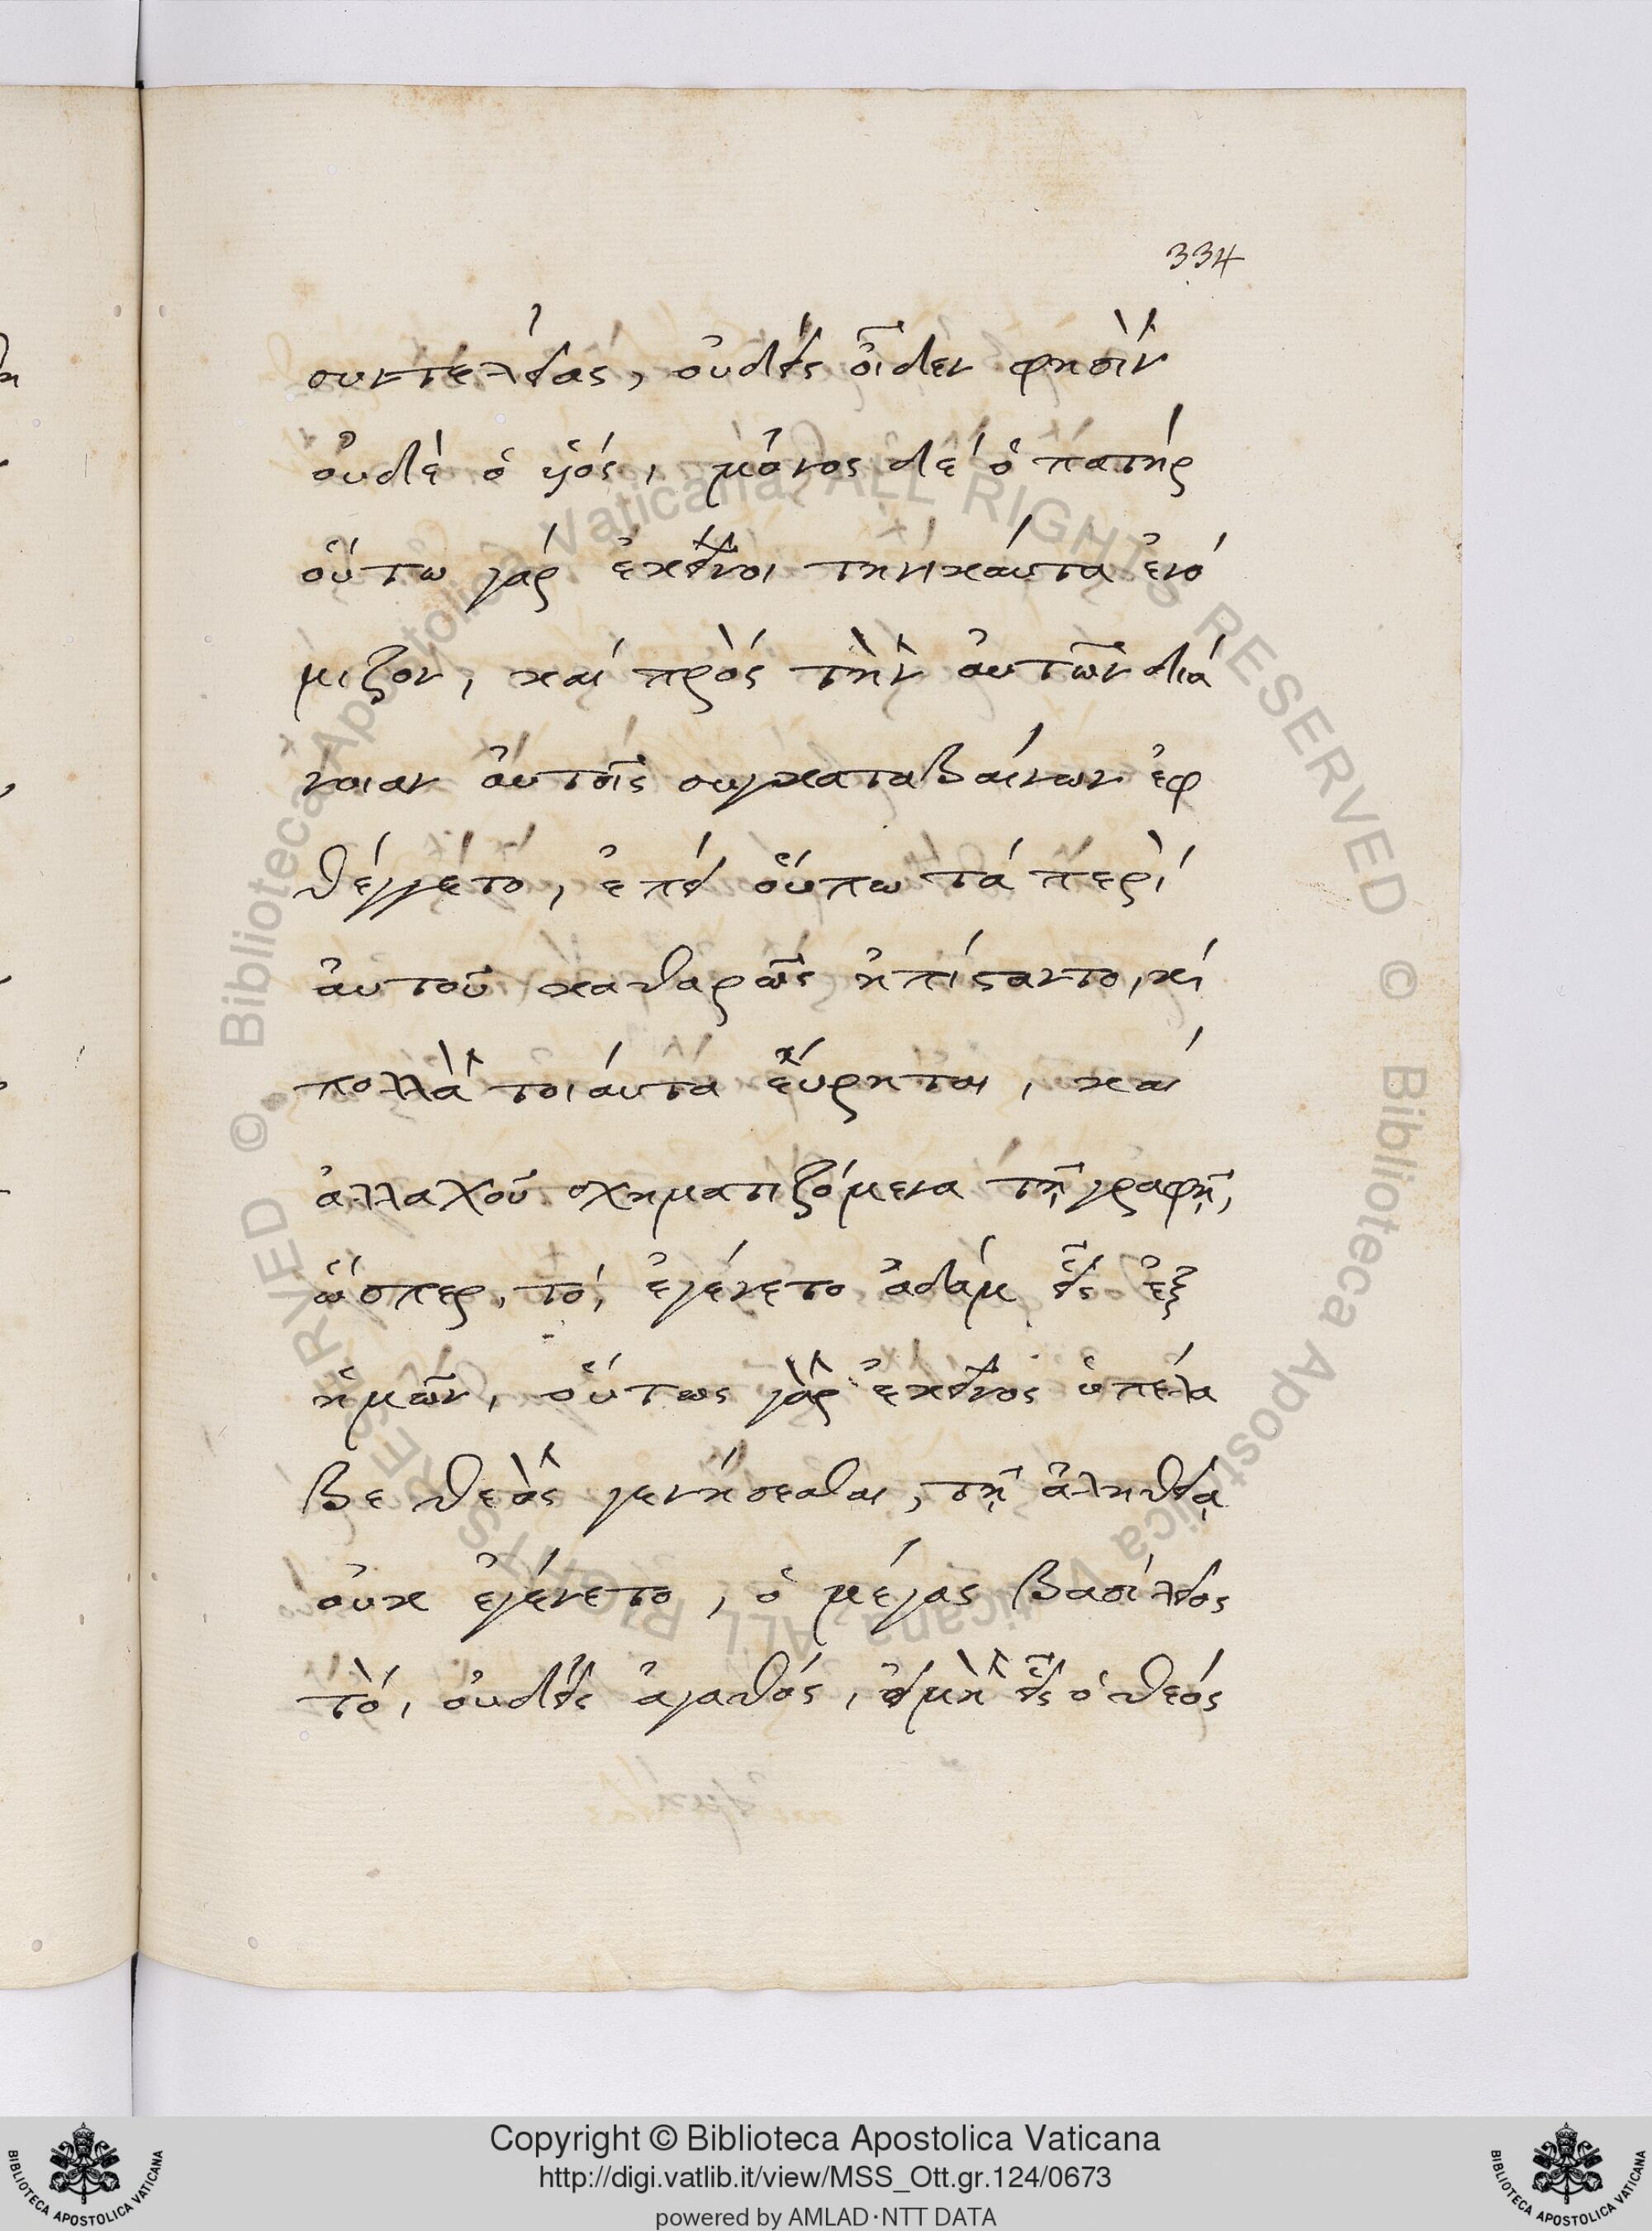 334
συντελείας, οὐδεὶς οἶδεν φησὶν
οὐδὲ ὁ υἱός, μόνος δέ ὁ πατήρ
οὕτω γάρ ἐκεῖνοι τηνικάυτα ἐνό
μιζον, καί πρὸς τὴν ἀυτῶν διά
νοιαν ἀυτοῖς συγκαταβαίνων ἐφ
θέγγετο, ἐπεί οὔπω τά περὶ
ἀυτοῦ καθαρῶς ἠπίσταντο, κὶ
πολλὰ τοιάυτα εὕρηται, καί
ἀλλαχοῦ σχηματιζόμενα τῇ γραφῇ,
ὥσπερ, τό, ἐγένετο ἀδάμ εἷς ἐξ
ἡμῶν, οὕτως γὰρ ἐκεῖνος ὑπέλα
βε θεὸς γενήσεσθαι, τῇ ἀληθείᾳ
οὐκ ἐγένετο, ὁ μέγας βασίλειος
τὸ, οὐδεὶς ἀγαθός, εἰμὴ εἷς ὁ θεός
Copyright © Biblioteca Apostolica Vaticana
http://digi.vatlib.it/view/MSS_Ott.gr.124/0673
powered by AMLAD·NTT DATA
© Biblioteca Apostolica Vaticana ALL RIGHTS RESERVED
© Biblioteca Apostolica Vaticana ALL RIGHTS RESERVED
BIBLIOTECA APOSTOLICA VATICANA
BIBLIOTECA APOSTOLICA VATICANA